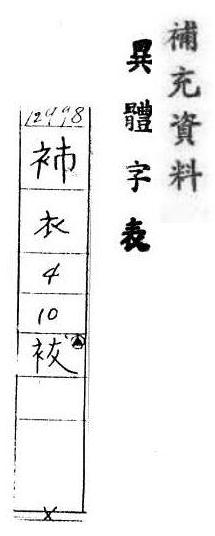 補充資料
異體字表
12998
衣
4
10
袚